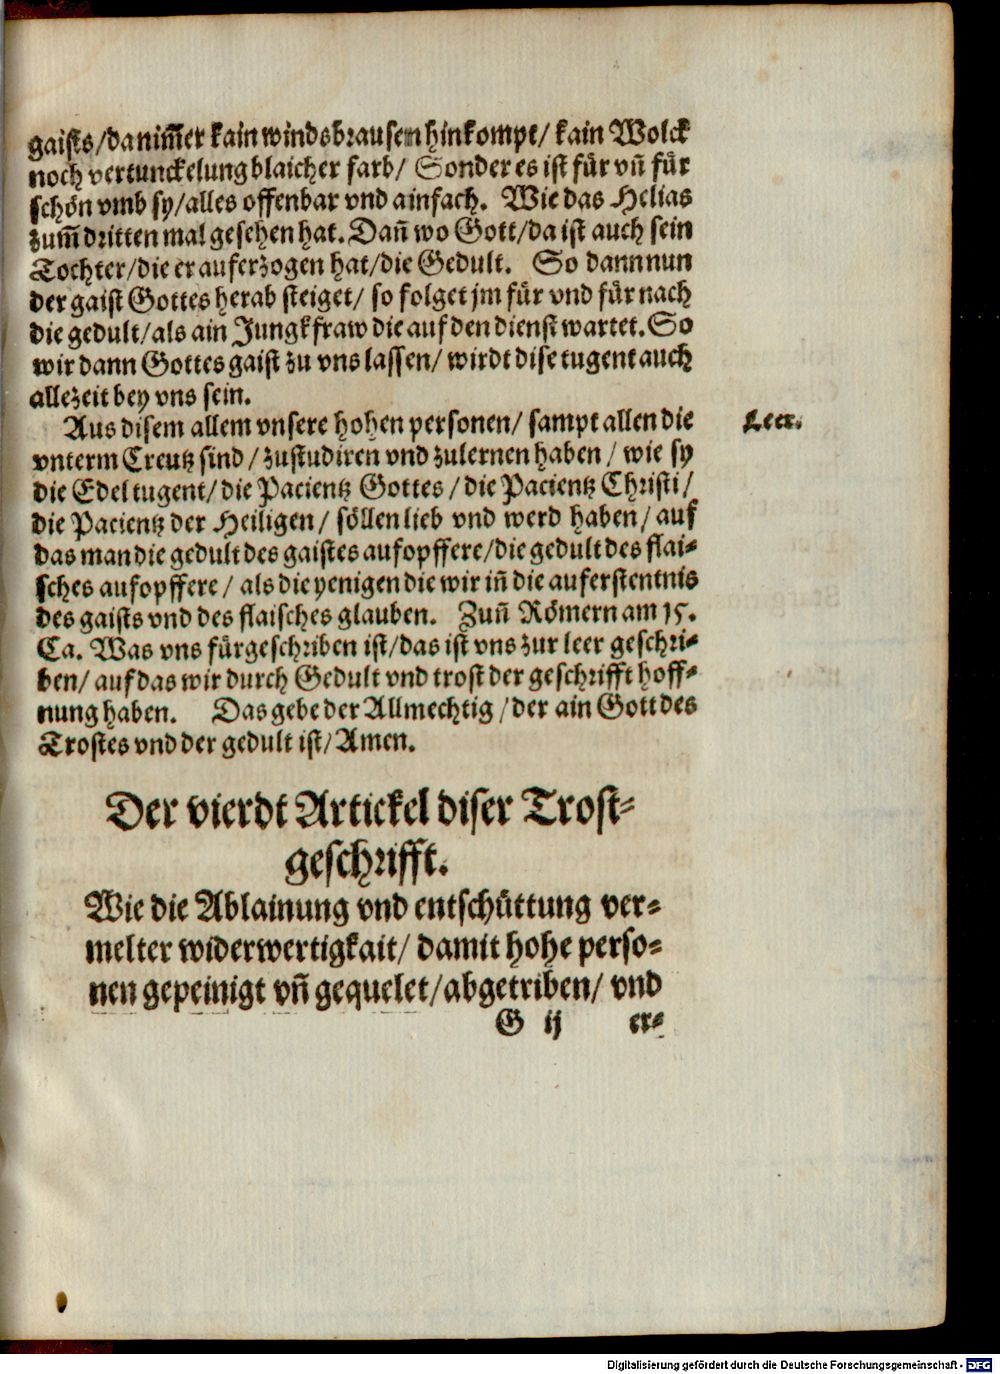 gaists/da nim̃er kain windsbrausen hinkompt/ kain Wolck
noch vertunckelung blaicher farb/ Sonder es ist für vñ für
schön vmb sy/alles offenbar vnd ainfach. Wie das Helias
zum̃ dritten mal gesehen hat. Dañ wo Gott/da ist auch sein
Tochter/die er auferzogen hat/die Gedult. So dann nun
der gaist Gottes herab steiget/ so folget jm für vnd für nach
die gedult/als ain Jungkfraw die auf den dienst wartet. So
wir dann Gottes gaist zu vns lassen/ wirdt dise tugent auch
allezeit bey vns sein.
Aus disem allem vnsere hohen personen/ sampt allen die
vnterm Creutz sind/ zustudiren vnd zulernen haben/ wie sy
die Edel tugent/die Pacientz Gottes/die Pacientz Christi/
die Pacientz der Heiligen/ söllen lieb vnd werd haben/ auf
das man die gedult des gaistes aufopffere/die gedult des flai-
sches aufopffere/ als die yenigen die wir iñ die auferstentnis
des gaists vnd des flaisches glauben. Zuñ Römern am 15.
Ca. Was vns fürgeschriben ist/das ist vns zur leer geschri-
ben/ auf das wir durch Gedult vnd trost der geschrifft hoff-
nung haben. Das gebe der Allmechtig/der ain Gott des
Trostes vnd der gedult ist/Amen.
Leer.
Der vierdt Artickel diser Trost-
geschrifft.
Wie die Ablainung vnd entschüttung ver-
melter widerwertigkait/ damit hohe perso-
nen gepeinigt vñ gequelet/abgetriben/ vnd
G ij er-
Digitalisierung gefördert durch die Deutsche Forschungsgemeinschaft - DFG